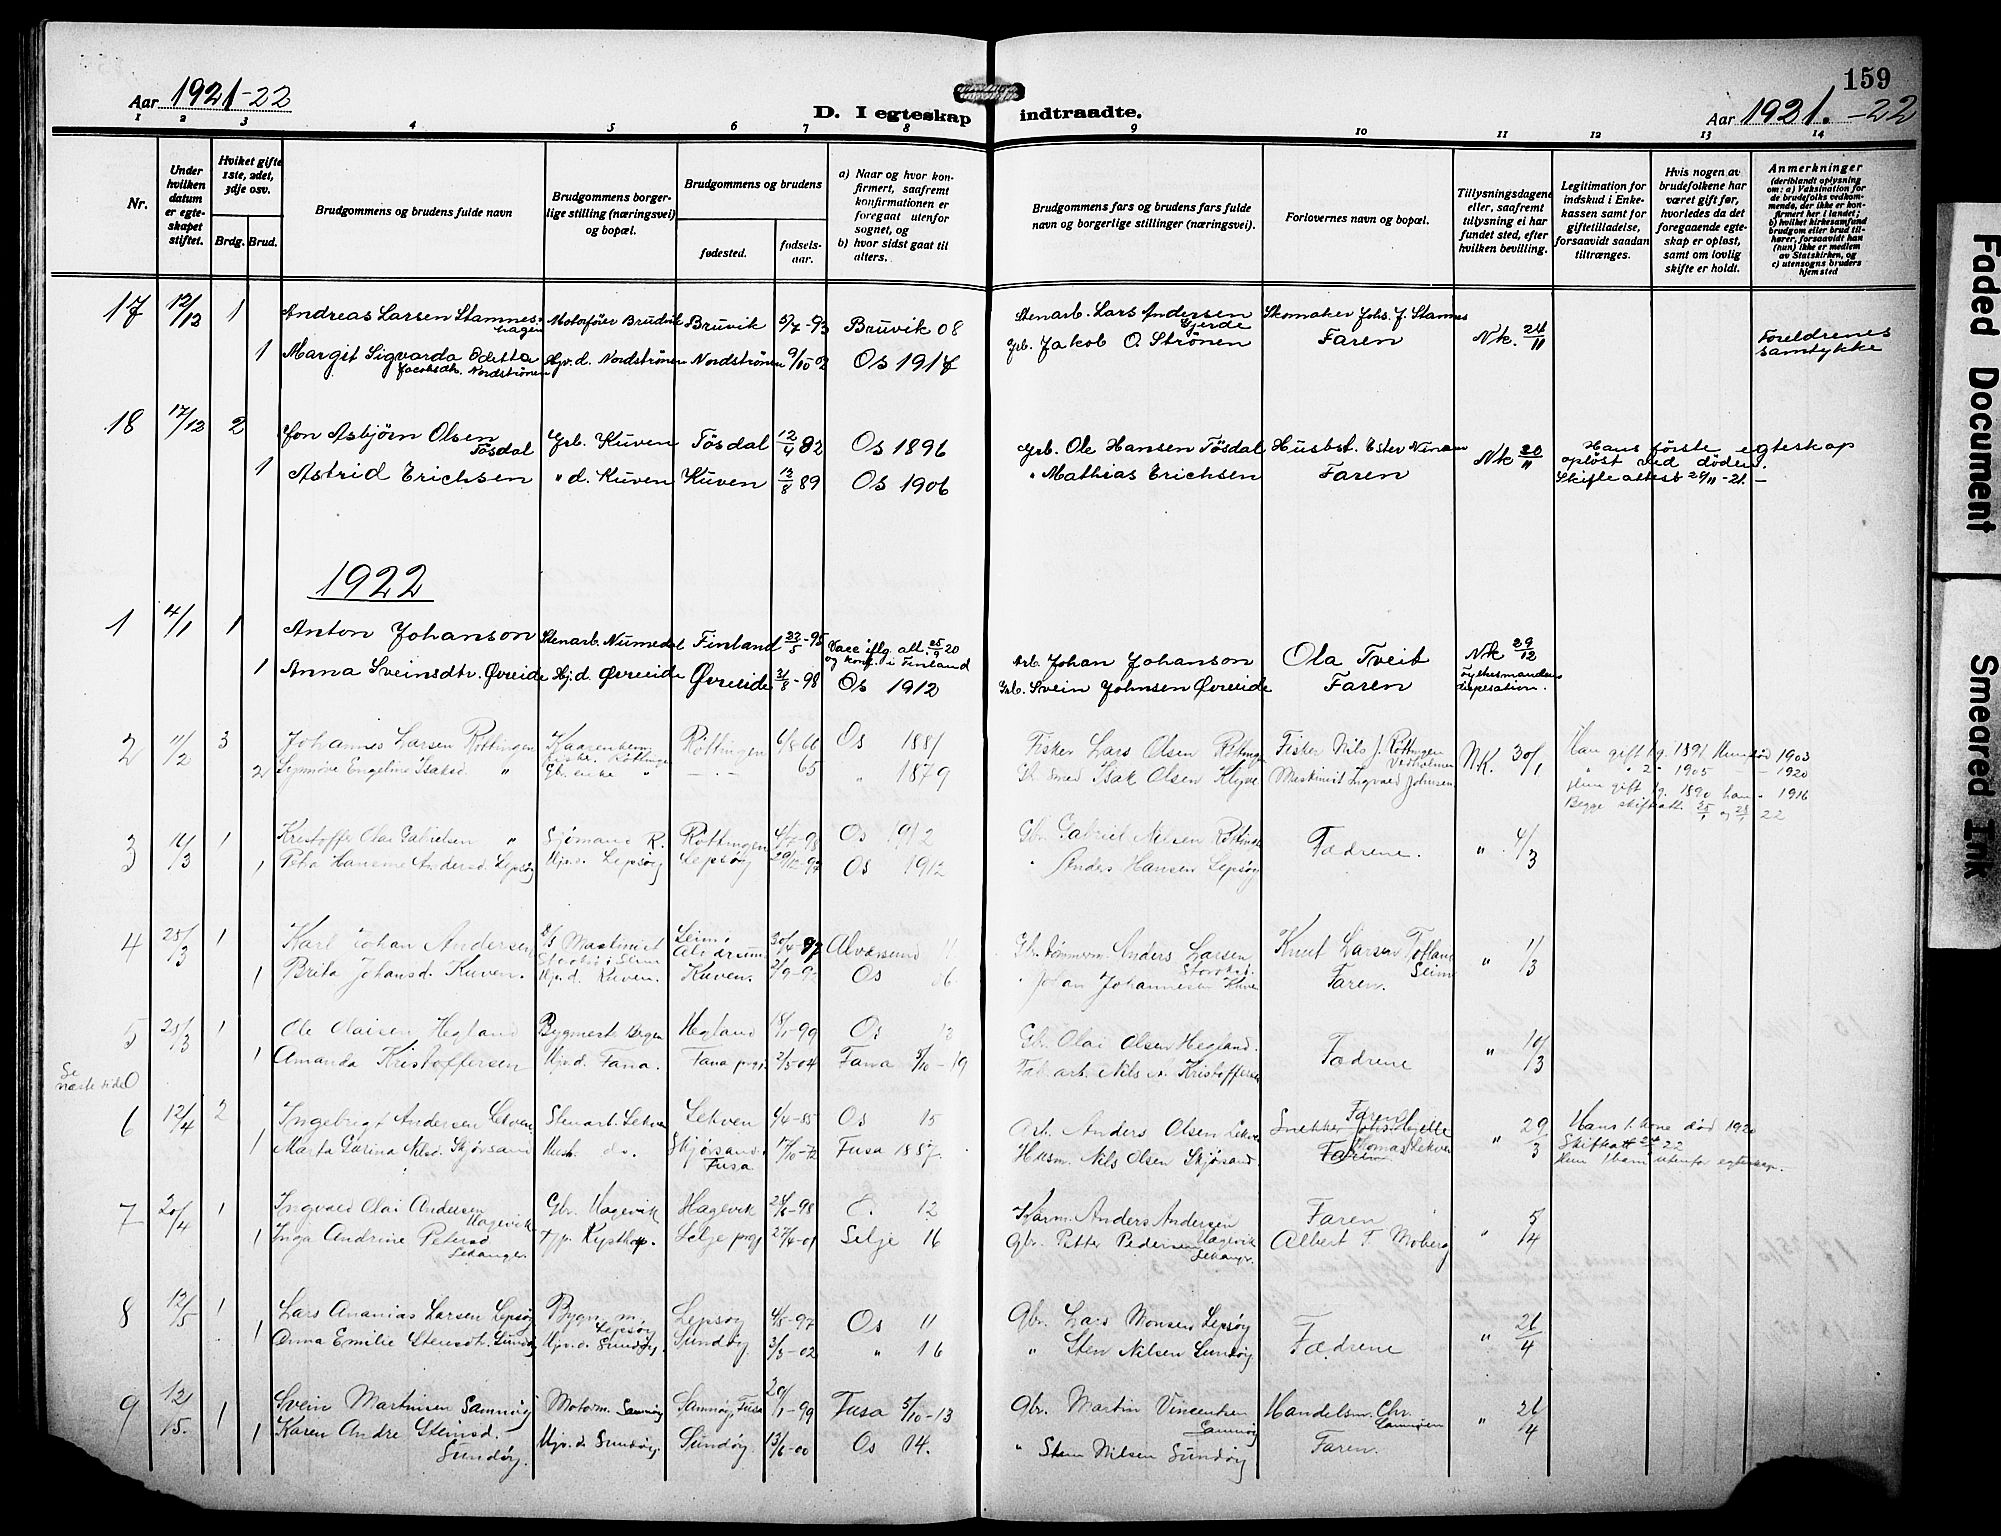 159
Aar 1921-22
D. I egteskap indtraadte.
Aar 1921.-22
1 2 3 4 5 6 7 8 9 10 11 12 13 14
Nr.
Under hvilken datum er egteskapet stiftet.
Hvilket gifte 1ste, 2det, 3dje osv.
Brdg. Brud.
Brudgommens og brudens fulde navn
Brudgommens borgerlige stilling (næringsvei) og bopæl.
Brudgommens og brudens
fødested.
fødselsaar.
a) Naar og hvor konfirmert, saafremt konfirmationen er foregaat utenfor sognet, og
b) hvor sidst gaat til alters.
Brudgommens fars og brudens fars fulde navn og borgerlige stillinger (næringsvei).
Forlovernes navn og bopæl.
Tillysningsdagene eller, saafremt tillysning ei har fundet sted, efter hvilken bevilling.
Legitimation for indskud i Enkekassen samt for giftetilladelse, forsaavidt saadan tiltrænges.
Hvis nogen av brudefolkene har været gift før, hvorledes da det foregaaende egteskap er opløst, samt om lovlig skifte er holdt.
Anmerkninger
(deriblandt oplysning om: a) Vaksination for de brudefolks vedkommende, der ikke er konfirmert her i landet; b) hvilket kirkesamfund brudgom eller brud tilhører, forsaavidt han (hun) ikke er medlem av Statskirken, og c) utensogns bruders hjemsted
17 12/12 1 Andreas Larsen Stamneshagen Motorfører Bruvik Bruvik 5/7-93 Bruvik 08 Stenarb. Lars Andersen Gjerde Skomaker Johs. J. Stamnes Nk. 24/11 Foreldrenes samtykke
1 Margit Sigvarda Oditta Jacobsdtr. Nordstrønen Hjv.d. Nordstrønen Nordstrønen 9/10-02 Os 1917 Grb. Jakob O. Strönen Faren
18 17/12 2 Jon Asbjörn Olsen Tösdal Grb. Kuven Tösdal 12/4 82 Os 1896 Grb. Ole Hansen Tösdal Husbst. Ester Nenam Nk 20/11 Hans förste egteskap oplöst ved döden. Skifteattest 26/11-21.-
1 Astrid Erichsen " d. Kuven Kuven 13/8 89 Os 1906 " Mathias Erichsen Faren
1922
1 4/1 1 Anton Johanson Stenarb. Numedal Finland 22/5-95 Vacc iflg. att. 25/9 20 og konf. i Finland Arb. Johan Johanson Ola Tveit Nk 29/12 Fylkesmandens dispensation.
1 Anna Sveinsdtr. Øvreide Hj.d. Øvreide Øvreeide 31/8-98 Os 1912 Grb. Svein Johnsen Øvreeide Faren
2 11/2 3 Johannes Larsen Røttingen Fisker Røttingen Røttingen 6/8 66 Os 1881 Fisker Lars Olsen Røttingen Fisker Nils J. Røttingen Vedholmen N.K. 30/1 Han gift 1 g. 1891 Hun død 1903
" " 2 " 1905 - - 1920
2 Synnøve Engeline Isaksd. " Gb. enke " -"- 65 " 1879 Gb. Smed Isak Olsen Klyve Maskinist Ingvald Johnsen Hun gift 1 g. 1890 han " 1916
Begge skifteatt. og 22
3 14/3 1 Kristoffer Olai Gabrielsen " Sjømand R. Røttingen -98 Os 1912 Gbr. Gabriel Nilsen Røttingen Fædrene. " 4/3
1 Hansine Andersd. Lepsøy Hjv.d. Lepsøy Lepsøy 29/12-97 Os 1912 " Anders Hansen Lepsøy
4 25/3 1 Karl Johan Andersen Maskinist Seim, Alvdrsund 30/4-97 Alversund 11 Gb. Tømmerm. Anders Larsen Knut Larsen Tofland Seim " 1/3
1 Brita Johansd. Kuven. Hjv.d. Kuven. Kuven. 2/9-92 Os 06 " Johan Johannesen Kuven Faren.
5 25/3 1 Ole Olaisen Hegland Bygmester Bergen Hegland 18/1-99 Os 13 Gb. Olai Olsen Hegland. Fædrene " 10/3
1 Amanda Kristoffersen Hjv.d. Fana. Fana prgj. 2/5-04 Fana 5/10-19 Fab. arb. Nils M. Kristoffersen
Se næste side
6 12/4 2 Ingebrigt Andersen Lekven Stenarb. Lekven Lekven 4/4-85 Os 15 Arb. Anders Olsen Lekven Faren " 29/3 Hans 1. kone død 1920
Skifteatt 22
1 Marta Garina Nilsd. Skjørsand Hush. do. Skjørsand. Fusa 17/10-72 Fusa 1887. Husm. Nils Olsen Skjørsand. Thomas Lekven Hun 1 barn utenfor egteskap.
7 20/4 1 Ingvald Olai Andersen Hagevik Gbr. Hagevik Hagevik 28/8-98 O. 12 Karm. Anders Andersen Hagevik Faren " 5/4
1 Inga Andrine Petersd. Selje prgj. 27/4-01 Selje 16 Gbr. Petter Pedersen Albert T. Moberg
8 12/5 1 Lars Ananias Larsen Lepsøy Bygn. m. Lepsøy Lepsøy 4/8-97 Os 11 Gbr. Lars Monsen Lepsøy Fædrene " 26/4
1 Anna Emilie Stensdt. Sundøy Hjv.d. Sundøy. Sundøy. 3/3-02 " 16 " Sten Nilsen Sundøy
9 12/5. 1 Svein Martinsen Samnøy Motorm. Samnøy Samnøy, Fusa 20/1-99 Fusa 5/10-13 Gbr. Martin Vincentsen Samnøy Handelsm. Chr. Samnøen " 26/4
1 Karen Andre Steinsd. Sundøy. Hjv.d. Sundøy. Sundøy. 13/6-00 Os 14. " Sten Nilsen Sundøy Faren.
Faded Document
Smeared Ink